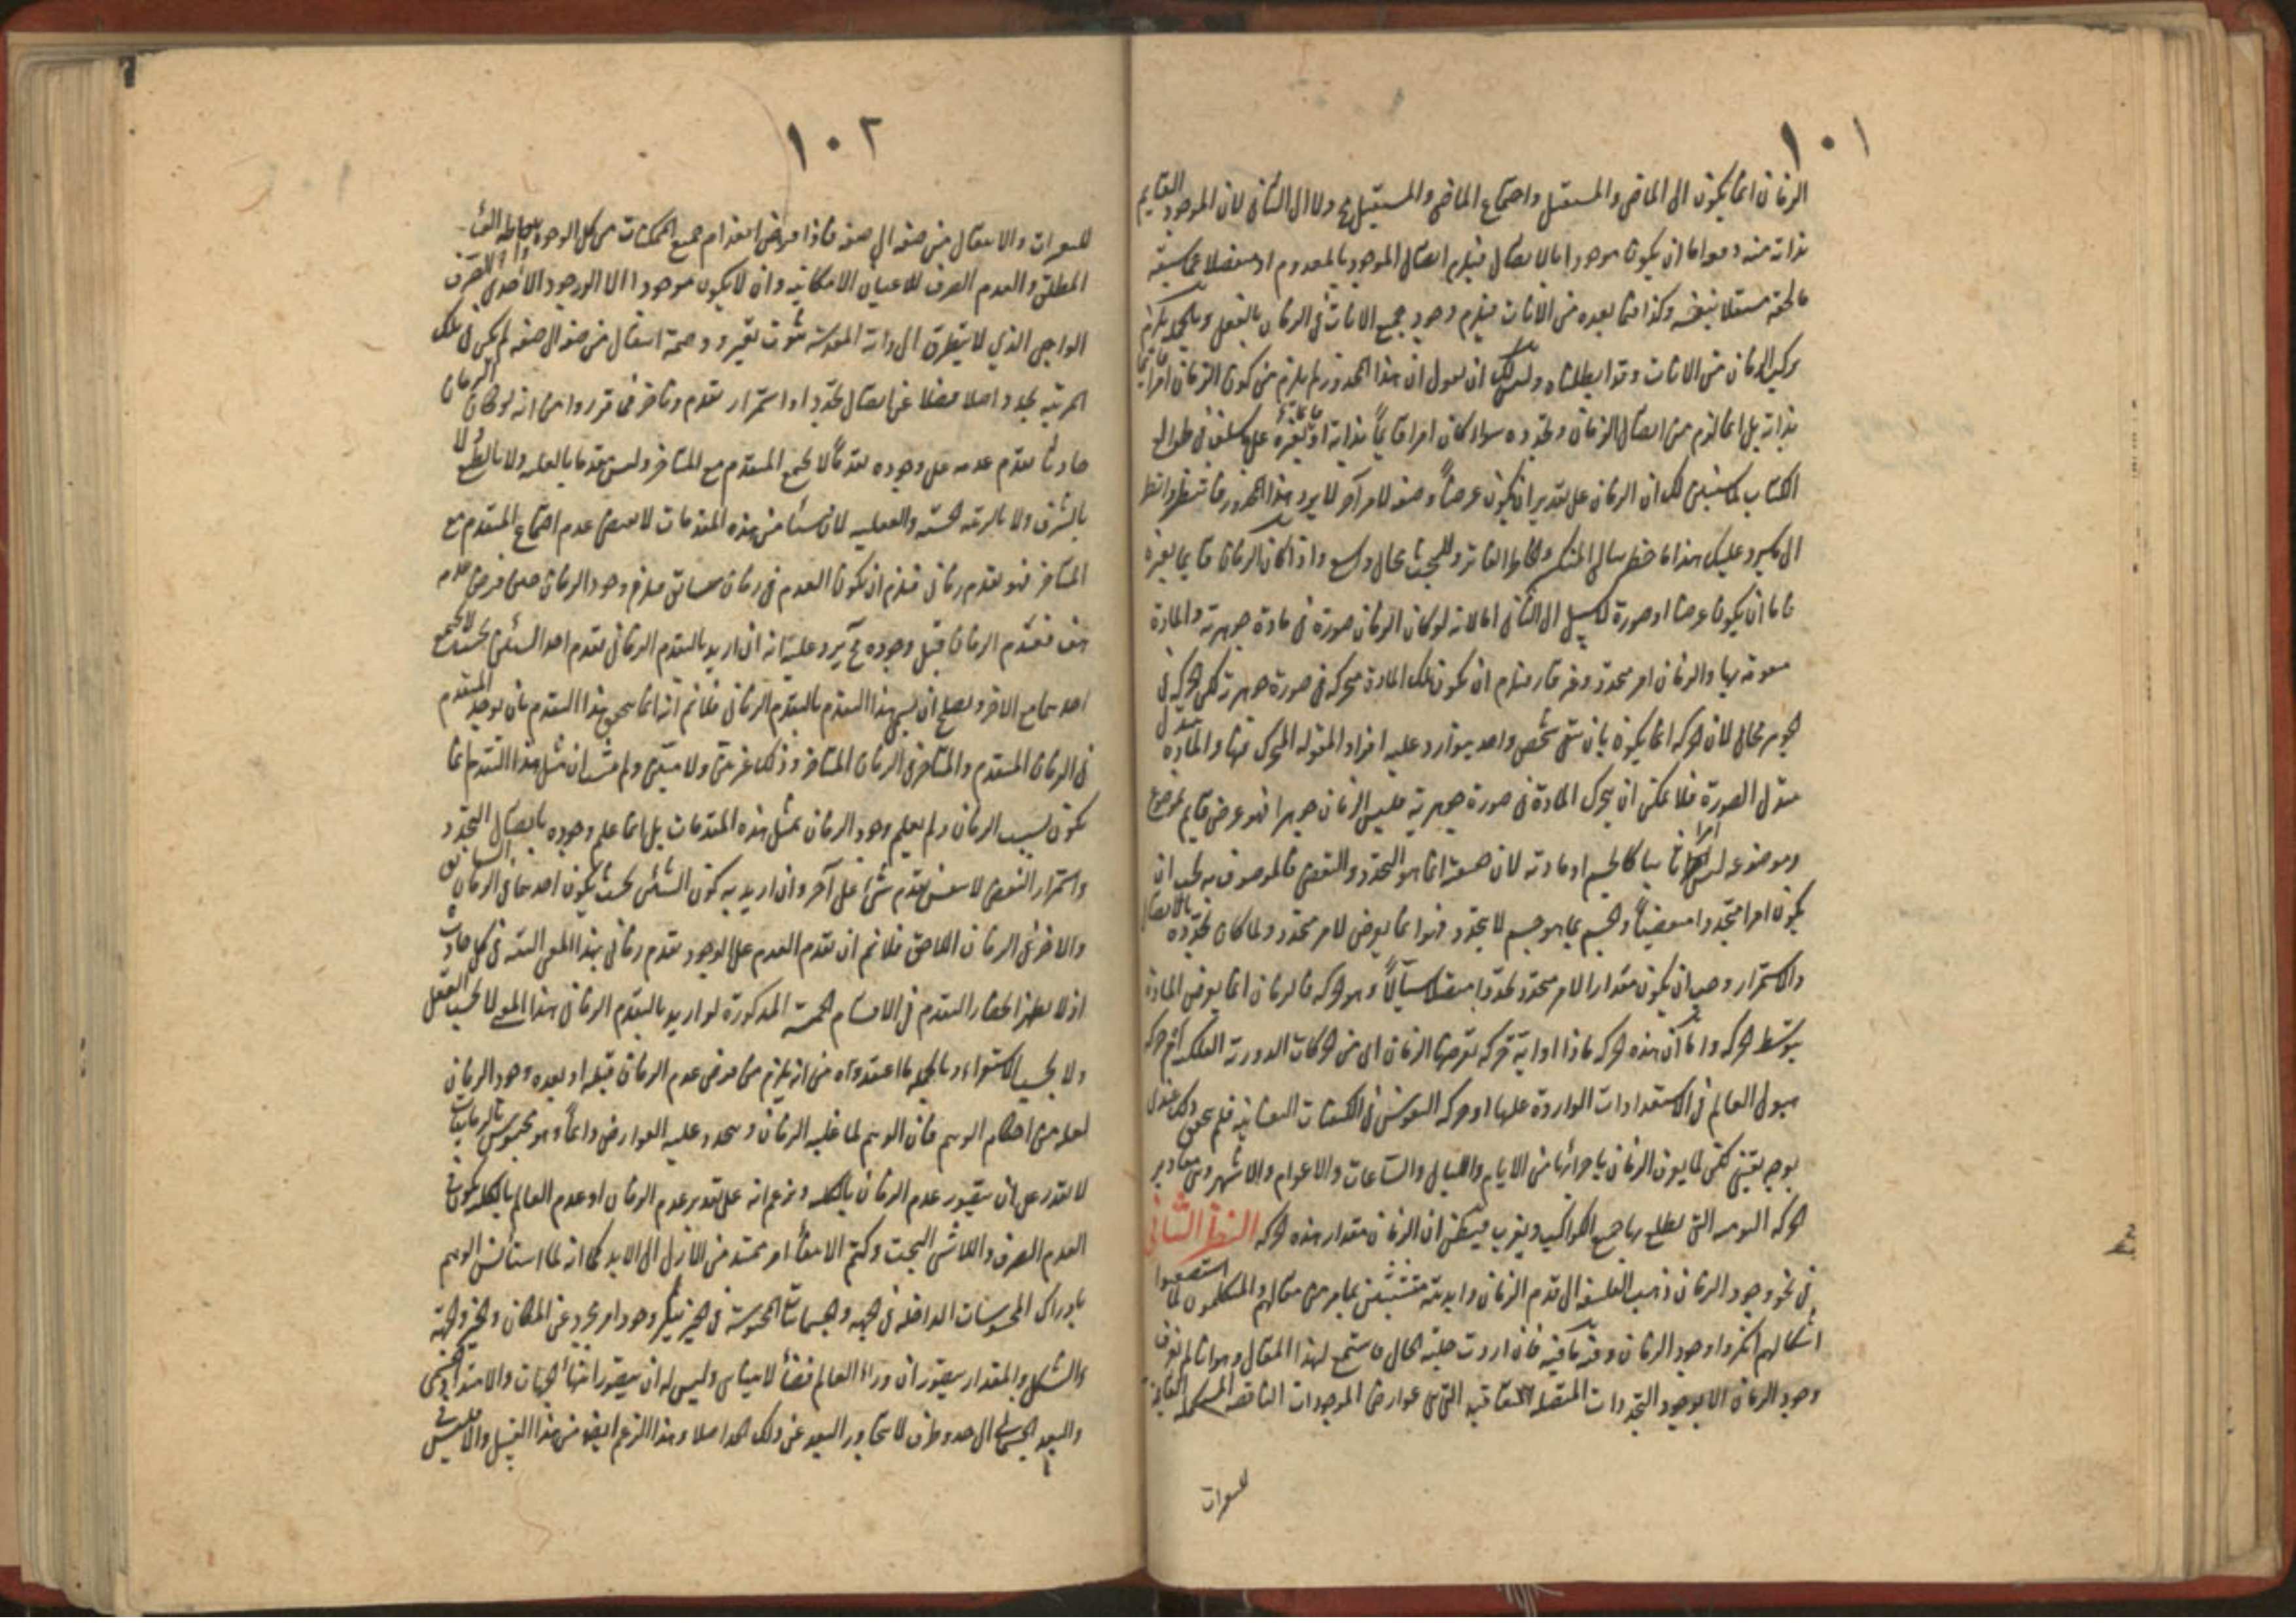 ١٠١
الزمان انما يكون الى الماضى والمستقبل واجتماع الماضى والمستقبل مح ولا الى الثانى لان الموجود القايم
بذاته منه دفعة اما ان يكون موجودا بالاتصال فيلزم اتصال الموجود بالمعدوم او منفصلا عما سبقه
مالحقه مستقلا بنفسه وكذا فيما بعده من الانات فيلزم وجود جميع الانات فى الزمان بالفعل وبالجمله يلزم
تركب الزمان من الانات وقد ابطلناه ولك ان تقول ان هذا المحذور لم يلزم من كون الزمان امرا قايما
بذاته بل انما لزم من اتصال الزمان وتجدده سواء كان امرا قايماً بذاته او بغيره على
الكتاب لك ان الزمان على تقدير ان يكون عرضاً وصفه لامر آخر لا يرد هذا المحذور
هذا ما خطر ببالى والخاطر الفاتر وللبحث مجال وسع واذا كان الزمان قايما بغيره
فاما ان يكون عرضا او صورة لا سبيل الى الثانى اما لانه لو كان الزمان صورة فى مادة جوهرية والمادة
بها والزمان امر متجدد وغير قار فيلزم ان تكون تلك المادة متحركه فى صورة جوهرية لكن الحركه فى
الجوهر محال لان الحركه انما يكون بان يبقى شخص واحد يتوارد عليه افراد المقوله المتحرك فيها والمادة
الصورة فلا يمكن ان يتحرك المادة فى صورة جوهرية فليس الزمان جوهرا فهو عرض قايم بموضوع
وموضوعه ليس امرا ثابتا كالجسم او مادته لان حقيقته انما هو التجدد والتقضى فالموصوف به يجب ان
يكون امرا متجددا متقضياً والجسم بما هو جسم لا يتجدد فهو انما يعرض لامر متجدد ولما كان تجدده بالاتصال
والاستمرار وجب ان يكون مقدارا لامر متجدد تجددا متصلا سيالاً وهو الحركه فالزمان انما يعرض المادة
بتوسط الحركه واما ان هذه الحركه ماذا واية حركه تعرضها الزمان اى من الحركات الدورية الفلكيه ام حركه
هيولى العالم فى الاستعدادات الواردة عليها او حركه النفوس فى الكيفيات النفسانيه فلم يتحقق ذلك عندى
بوجه يقينى لكن لما يعرف الزمان باجزائها من الايام والليالى والساعات والاعوام والاشهر وهى مقادير
الحركه اليوميه التى يطلع بها جميع الكواكب ويغرب فيمكن ان الزمان مقدار هذه الحركه النظر الثانى
فى نحو وجود الزمان ذهب الفلسفه الى قدم الزمان وابديته متشبثين بما مر من مقالهم والمتكلمون لما استصعبوا
اشكالهم انكروا وجود الزمان وقد ما فيه فان اردت جلية الحال فاستمع لهذا المقال وهو انا لم نعرف
وجود الزمان الا بوجود التجددات المتصله المتعاقبه التى هى عوارض الموجودات الناقصه المستكمله القابله
للتغيرات
١٠٢
للتغيرات والانتقال من صفه الى صفه فاذا فرض انعدام جميع الممكنات من كل الوجوه
المطلق والعدم الصرف للاعيان الامكانيه وان لا يكون موجودا الا الوجود الاحدى الصرف
الواجبى الذى لا يتطرق الى ذاته المقدسه شوب تغير ووصمة انتقال من صفه الى صفه لم يكن فى تلك
المرتبه تجدد اصلا فضلا عن اتصال تجدد او استمرار تقدم وتاخر فى تقرر واما انه لو كان الزمان
حادثا تقدم عدمه على وجوده تقدماً لا يجمع المتقدم مع المتاخر وليس تقدما بالعله ولا بالطبع ولا
بالشرف ولا بالرتبه الحسيه والعقليه لان شيئا من هذه التقدمات لا يقتضى عدم اجتماع المتقدم مع
المتاخر فهو تقدم زمانى فيلزم ان يكون العدم فى زمان سابق فيلزم وجود الزمان حين فرض عدمه
هف فتقدم الزمان قبل وجوده مح يرد عليه انه ان اريد بالتقدم الزمانى تقدم احد الشيئين بحيث لا يجمع
احدهما مع الاخر ويصلح ان يسمى هذا التقدم بالتقدم الزمانى فلا نم انه انما يتحقق هذا التقدم بان يوجد المتقدم
فى الزمان المتقدم والمتاخر فى الزمان المتاخر وذلك غير بين ولا مبين ولم يثبت ان مثل هذا التقدم انما
يكون بسبب الزمان ولم يعلم وجود الزمان بمثل هذه المقدمات بل انما علم وجوده باتصال التجدد
واستمرار التقضى لا بنفس تقدم شئ على آخر وان اريد به كون الشئين بحيث يكون احدهما فى الزمان السابق
والاخر فى الزمان اللاحق فلا نم ان تقدم العدم على الوجود تقدم زمانى بهذا المعنى البته فى كل حادث
اذ لا يظهر انحصار التقدم فى الاقسام الخمسه المذكورة لو اريد بالتقدم الزمانى هذا المعنى لا بحسب العقل
ولا بحسب الاستقراء وبالجمله ما اعتقدوه من انه يلزم من فرض عدم الزمان قبله او بعده وجود الزمان
لعله من احكام الوهم فان الوهم لما غلبه الزمان ويتجدد عليه العوارض دائماً وهو محبوس بالزمانيات
لا يقدر على ان يتصور عدم الزمان بالكليه ويزعم انه على تقدير عدم الزمان او عدم العالم بالكليه يكون فى
العدم الصرف واللاشئ البحت وكتم الانتفاء امر ممتد من الازل الى الابد كما انه لما استأنس الوهم
بادراك المحسوسات الداخله فى الجهه والجسمانيات المحبوسة فى الحيز ينكر وجود امر مجرد عن المكان والحيز والجهة
والشكل والمقدار ويتصور ان وراء العالم فضاء لا يتناهى وليس له ان يتصور انتهاء الجهات والامتداد الجسمى
والبعد الجسمانى الى حد وطرف لا يتجاوز البعد عن ذلك الحد اصلا وهذا الزعم ايضا من هذا القبيل